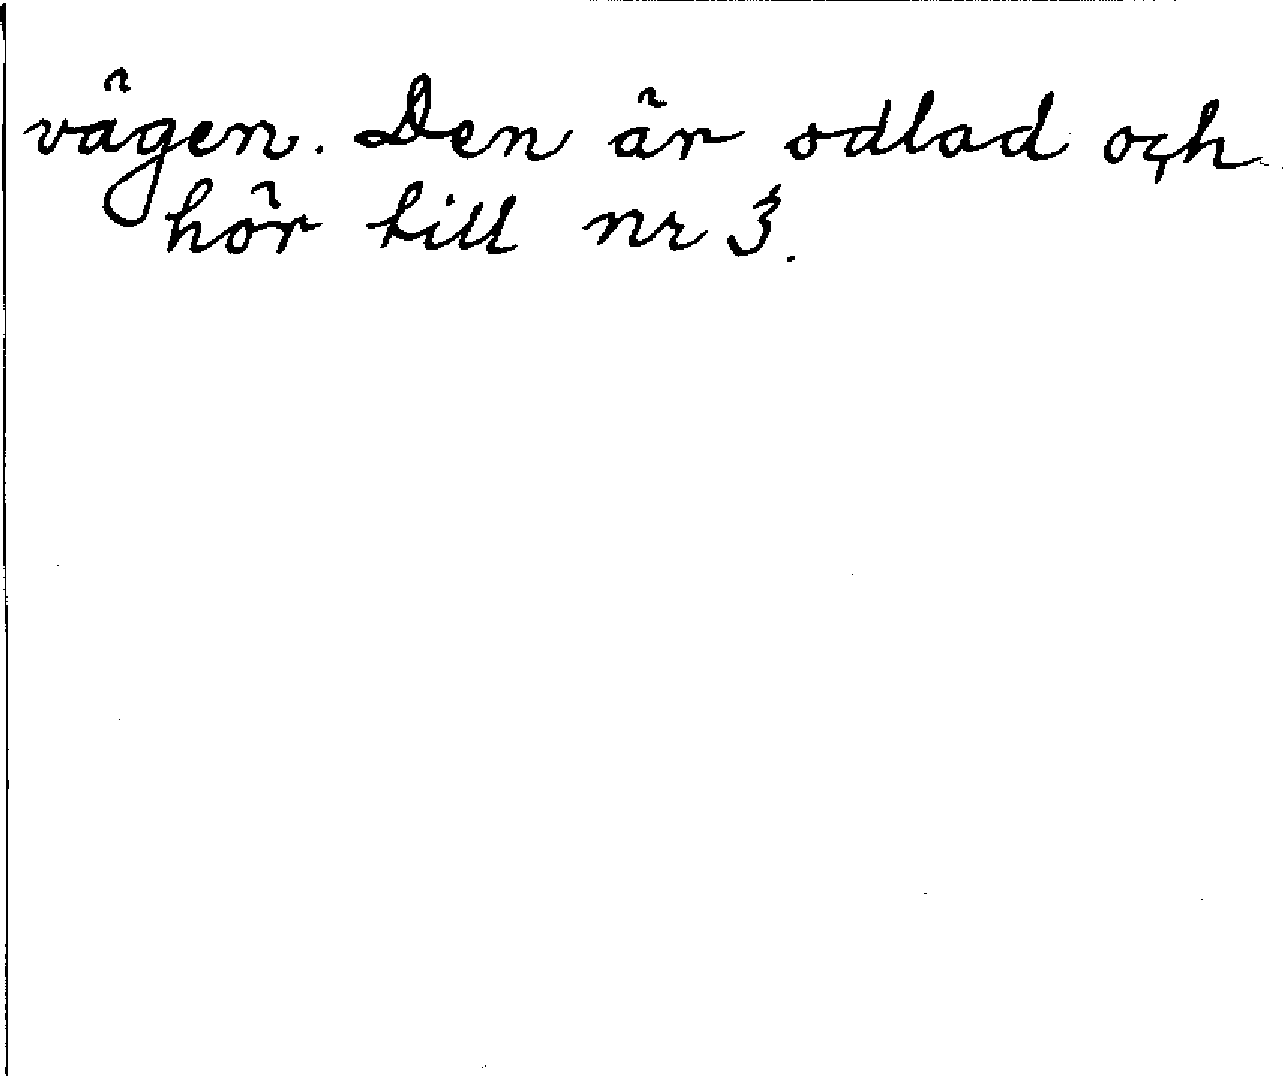 vägen. Den är odlad och
hör till nr 3.